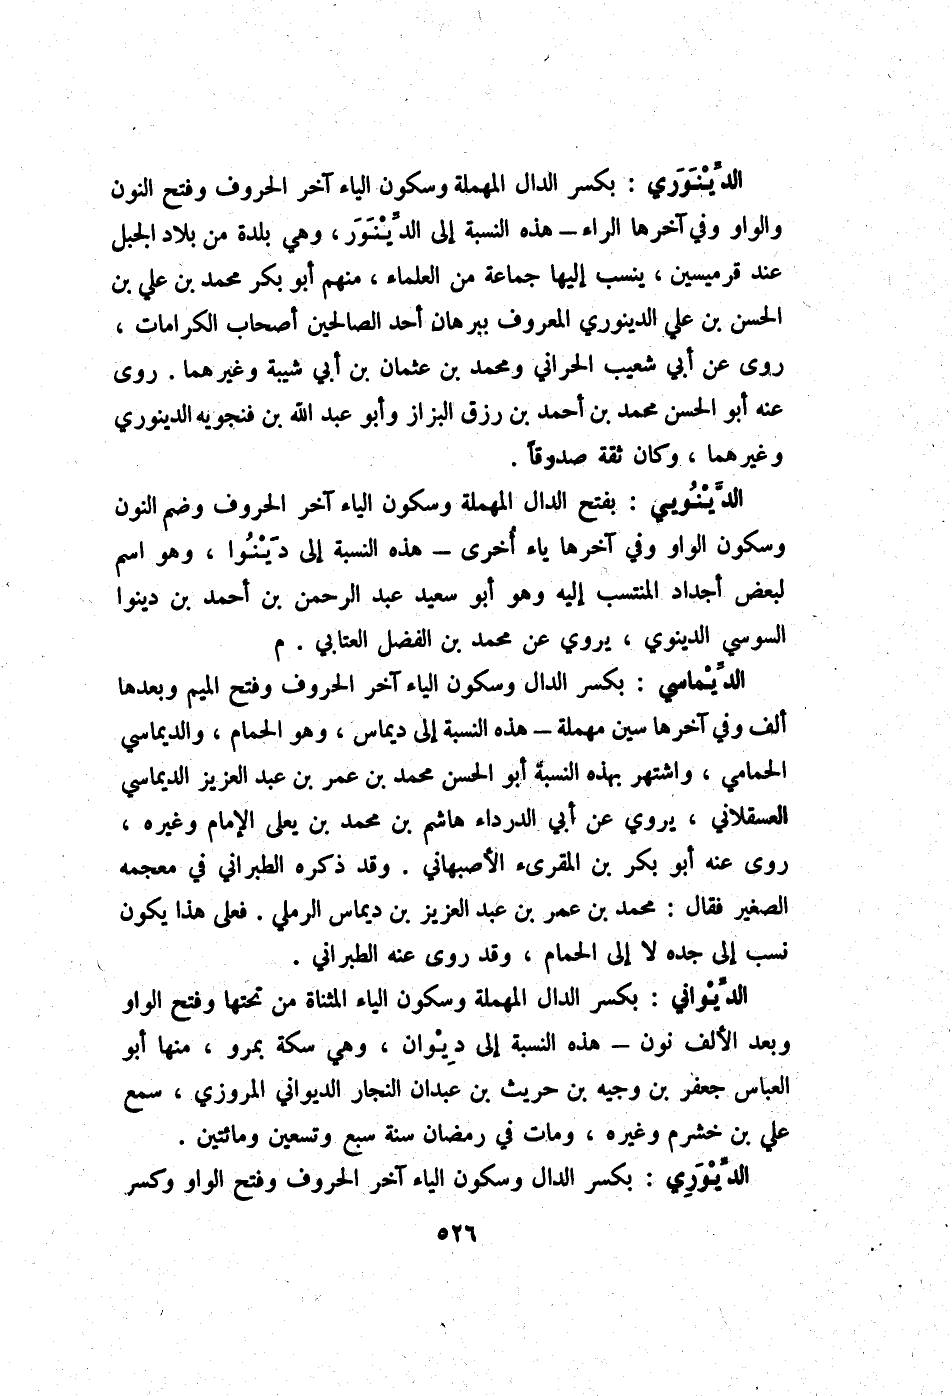 الدِّيْنَوَري : بكسر الدال المهملة وسكون الياء آخر الحروف وفتح النون
والواو وفي آخرها الراء – هذه النسبة إلى الدِّيْنَوَر ، وهي بلدة من بلاد الجبل
عند قرميسين ، ينسب إليها جماعة من العلماء ، منهم أبو بكر محمد بن علي بن
الحسن بن علي الدينوري المعروف ببرهان أحد الصالحين أصحاب الكرامات ،
روى عن أبي شعيب الحراني ومحمد بن عثمان بن أبي شيبة وغيرهما . روى
عنه أبو الحسن محمد بن أحمد بن رزق البزاز وأبو عبد الله بن فنجويه الدينوري
وغيرهما ، وكان ثقة صدوقاً .
الدَّيْنُويي : بفتح الدال المهملة وسكون الياء آخر الحروف وضم النون
وسكون الواو وفي آخرها ياء أُخرى – هذه النسبة إلى دَيْنُوا ، وهو اسم
لبعض أجداد المنتسب إليه وهو أبو سعيد عبد الرحمن بن أحمد بن دينوا
السوسي الدينوي ، يروي عن محمد بن الفضل العتابي . م
الدِّيْماسي : بكسر الدال وسكون الياء آخر الحروف وفتح الميم وبعدها
ألف وفي آخرها سين مهملة – هذه النسبة إلى ديماس ، وهو الحمام ، والديماسي
الحمامي ، واشتهر بهذه النسبة أبو الحسن محمد بن عمر بن عبد العزيز الديماسي
العسقلاني ، يروي عن أبي الدرداء هاشم بن محمد بن يعلى الإمام وغيره ،
روى عنه أبو بكر بن المقرىء الأصبهاني . وقد ذكره الطبراني في معجمه
الصغير فقال : محمد بن عمر بن عبد العزيز بن ديماس الرملي . فعلى هذا يكون
نسب إلى جده لا إلى الحمام ، وقد روى عنه الطبراني .
الدِّيْواني : بكسر الدال المهملة وسكون الياء المثناة من تحتها وفتح الواو
وبعد الألف نون – هذه النسبة إلى دِيْوان ، وهي سكة بمرو ، منها أبو
العباس جعفر بن وجيه بن حريث بن عبدان النجار الديواني المروزي ، سمع
علي بن خشرم وغيره ، ومات في رمضان سنة سبع وتسعين ومائتين .
الدِّيْوَرِي : بكسر الدال وسكون الياء آخر الحروف وفتح الواو وكسر
٥٢٦